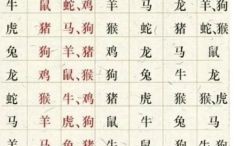 牛 鼠 蛇、鸡 羊 马 龙 羊、狗
虎 猪 马、狗 猴 蛇 猪 猴
兔 狗 羊、猪 鸡 龙 马 狗
龙 鸡 鼠、猴 狗 兔 龙 鸡
蛇 猴 牛、鸡 猪 虎 猴 猴、虎
马 羊 虎、狗 鼠 牛 兔 马
羊 马 兔、猪 牛 鼠 狗 兔